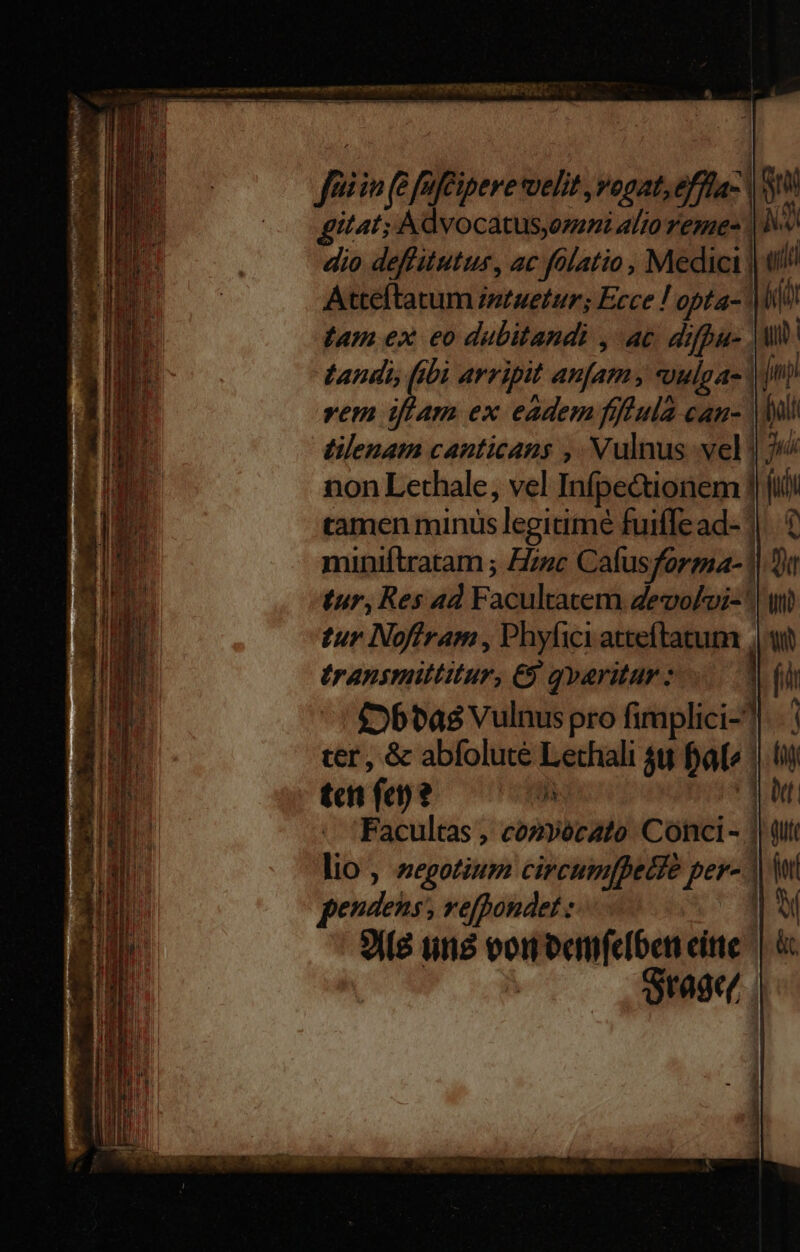 ſui in ſe ſuſcipere velit, rogat, effla-
gitat; Advocatus, omni alio reme-
dio deſtitutus, ac ſolatio, Medici
Atteſtatum intuetur; Ecce! opta-
tam ex eo dubitandi, ac diſpu-
tandi, ſibi arripit anſam, vulga-
rem iſtam ex eâdem fiſtulâ can-
tilenam canticans, Vulnus vel
non Lethale, vel Inſpectionem
tamen minùs legitimé fuiſſe ad-
miniſtratam; Hinc Caſus forma-
tur, Res ad Facultatem devolvi-
tur Noſtram, Phyſici atteſtatum
transmittitur, & qværitur:
Ob das Vulnus pro ſimplici-
ter, & abſoluté Lethali zu hal-
ten ſey?
Facultas, convocato Conci-
lio, negotium circumſpectè per-
pendens, reſpondet:
Als uns von demſelben eine
Frage/